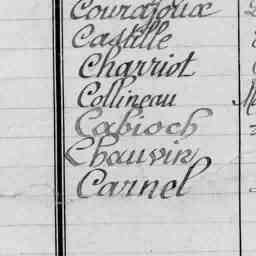 Couratoux
Castille
Charriot
Collineau
Cabioch
Chauvin
Carnel